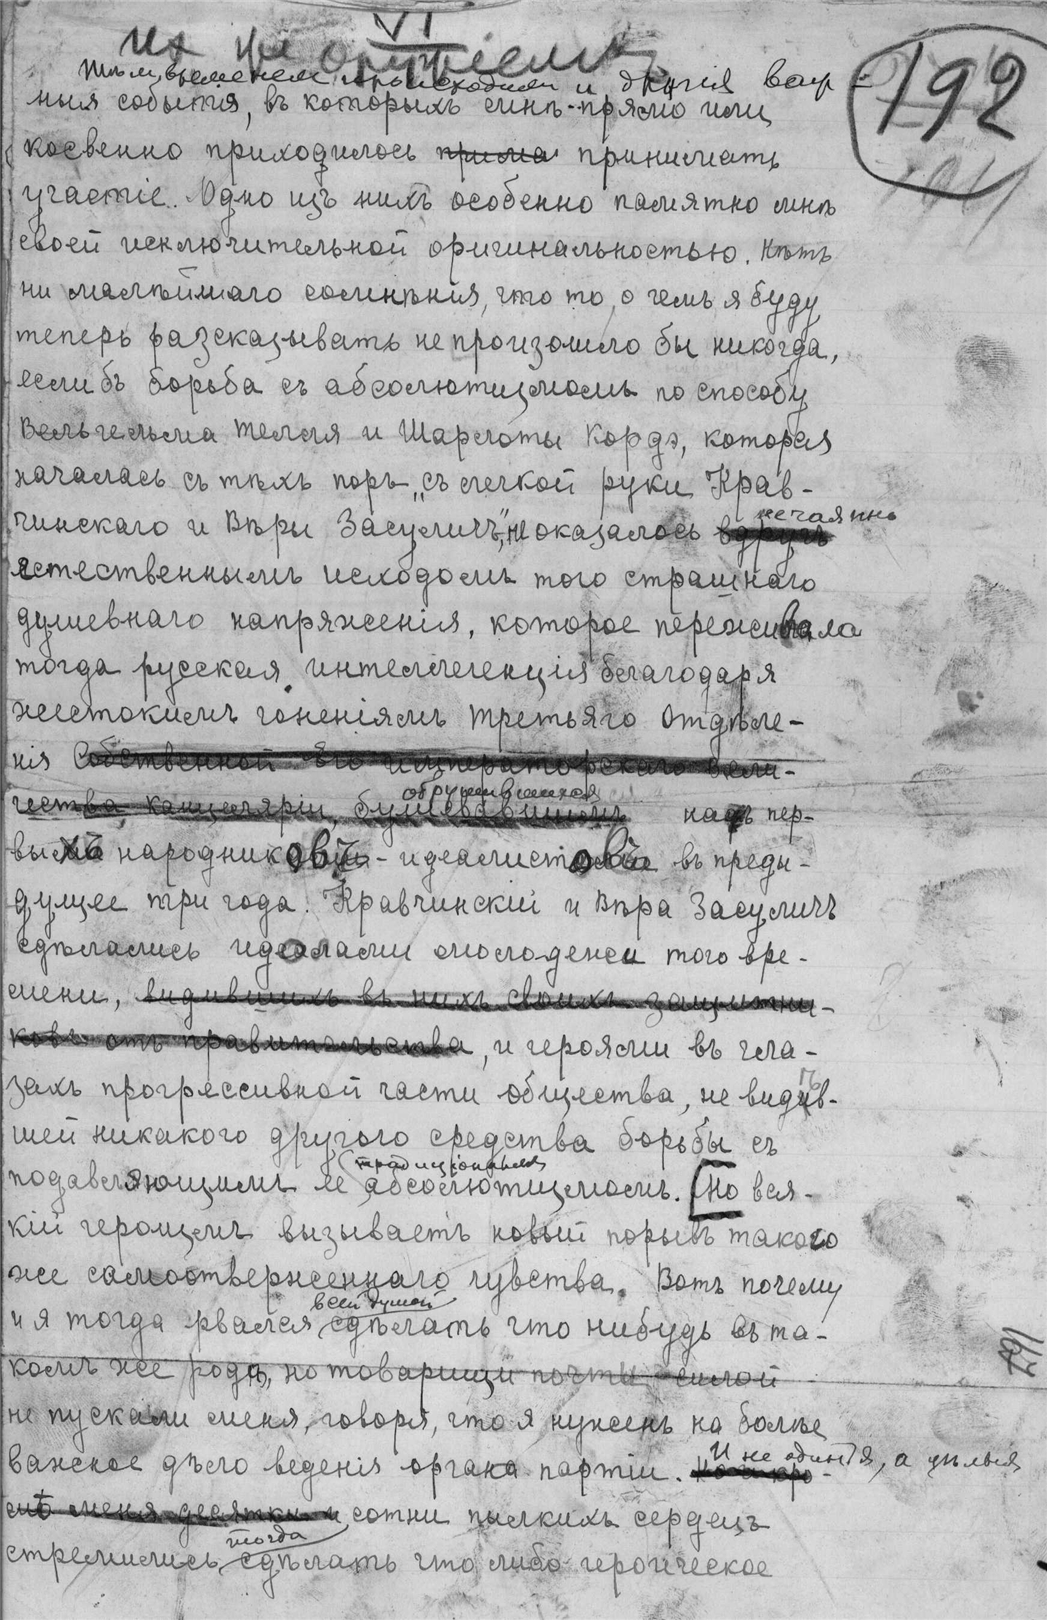 VI
192
Тѣмъ временемъ происходили и другія важ-
ныя событія, въ которыхъ мнѣ прямо или
косвенно приходилось прима принимать
участіе. Одно изъ нихъ особенно памятно мнѣ
своей исключительной оригинальностью. Нѣтъ
ни малѣйшаго сомнѣнія, что то, о чемъ я буду
теперь разсказывать не произошло бы никогда,
если бъ борьба съ абсолютизмомъ по способу
Вельгельма Телля и Шарлоты Кордэ, которая
началась съ тѣхъ поръ „съ легкой руки Крав-
чинскаго и Вѣры Засуличъ", не оказалось вдругъ нечаянно
естественнымъ исходомъ того страшнаго
душевнаго напряженія, которое переживала
тогда русская интеллегенція благодаря
жестокимъ гоненіямъ Третьяго Отдѣле-
нія Собственной Его императорскаго вели-
чества канцеляріи, бушевавшимъ обрушившихся на пер-
выхъ народниковъ-идеалистовъ въ преды-
дущее три года. Кравчинскій и Вѣра Засуличъ
сдѣлались идеалами молодежи того вре-
мени, видившихъ въ нихъ своихъ защитни-
ковъ отъ правительства, и героями въ гла-
захъ прогрессивной части общества, не видѣв-
шей никакого другого средства борьбы съ
подавляющимъ ее традиціоннымъ абсолютизмомъ. [Но вся-
кій героизмъ вызываетъ новый порывъ такого
же самоотверженнаго чувства. Вотъ почему
и я тогда рвался всей душой сдѣлать что нибудь въ та-
комъ же родѣ, но товарищи почти силой
не пускали меня, говоря, что я нуженъ на болѣе
важное дѣло веденія органа партіи. Но и кро- И не одинъ я, а цѣлыя
мѣ меня десятки и сотни пылкихъ сердецъ
стремились тогда сдѣлать что либо героическое
167